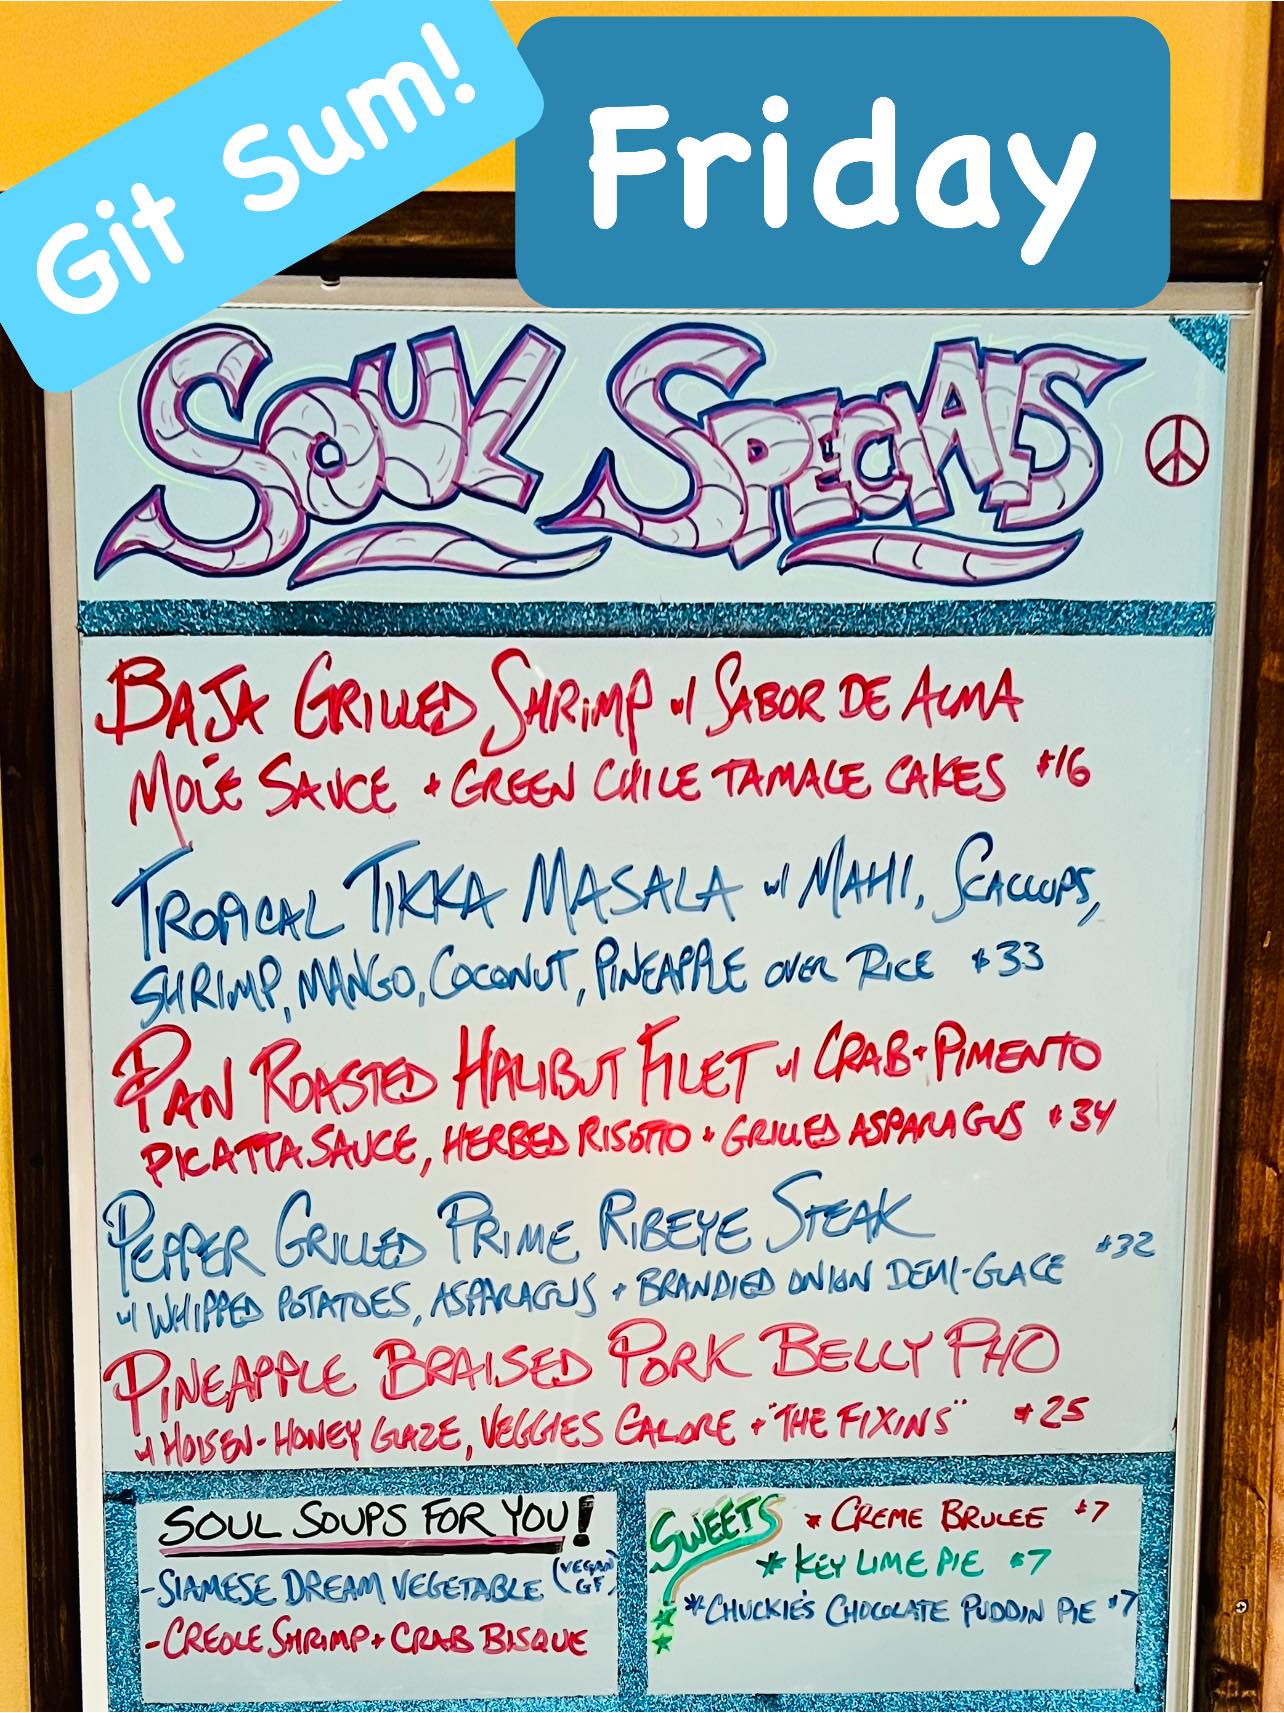 Git Sum!
Friday
SOUL SPECIALS
BAJA GRILLED SHRIMP w/ SABOR DE ALMA
MOLÉ SAUCE + GREEN CHILE TAMALE CAKES $16
TROPICAL TIKKA MASALA w/ MAHI, SCALLOPS,
SHRIMP, MANGO, COCONUT, PINEAPPLE OVER RICE $33
PAN ROASTED HALIBUT FILET w/ CRAB + PIMENTO
PICATTA SAUCE, HERBED RISOTTO + GRILLED ASPARAGUS $34
PEPPER GRILLED PRIME RIBEYE STEAK
w/ WHIPPED POTATOES, ASPARAGUS + BRANDIED ONION DEMI-GLACE $32
PINEAPPLE BRAISED PORK BELLY PHO
w/ HOISEN-HONEY GLAZE, VEGGIES GALORE + "THE FIXINS" $25
SOUL SOUPS FOR YOU!
-SIAMESE DREAM VEGETABLE (VEGAN GF)
-CREOLE SHRIMP + CRAB BISQUE
SWEETS
* CREME BRULEE $7
* KEY LIME PIE $7
* CHUCKIE'S CHOCOLATE PUDDIN PIE $7